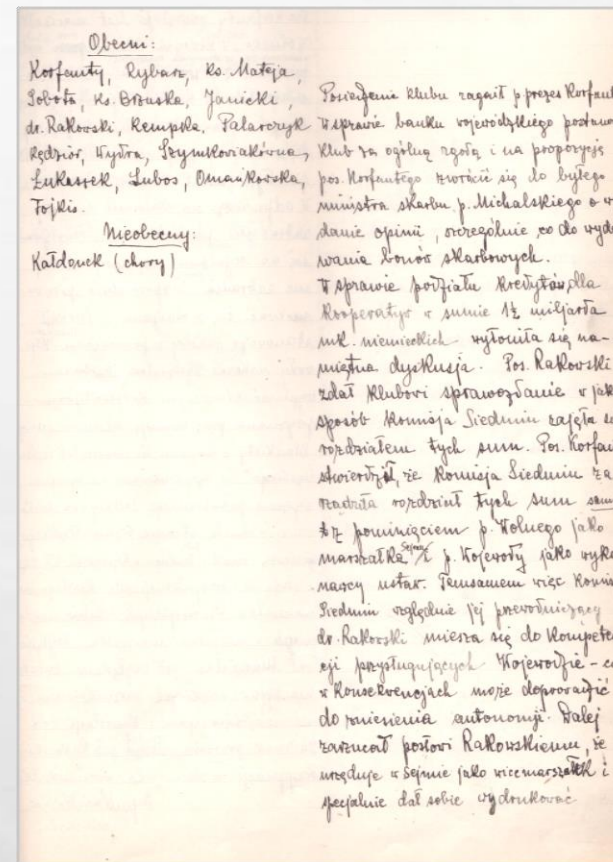 Obecni:
Korfanty, Rybarz, Ks. Mateja,
Sobota, Ks. Brzuska, Janicki,
dr. Rakowski, Kempka, Palarczyk
Kędzior, Wydra, Szymkowiakówna,
Łukaszek, Lubos, Omańkowska,
Fojkis.
Nieobecny:
Kałdonek (chory)
Posiedzenie klubu zagaił p prezes Korfant
W sprawie banku wojewódzkiego postano
klub za ogólną zgodą i na propozycję
pos. Korfantego zwrócić się do byłego
ministra skarbu p. Michalskiego o w
danie opinii, szczególnie co do wyda
wania bonów skarbowych.
W sprawie podziału kredytów dla
Kooperatyw w sumie 1½ miljarda
mk. niemieckich wyłoniła się na-
miętna dyskusja. Pos. Rakowski
zdał klubowi sprawozdanie w jak
sposób Komisja Siedmiu zajęła s
rozdziałem tych sum. Pos. Korfan
stwierdził, że Komisja Siedmiu za
rządziła rozdział tych sum sam
z pominięciem p. Wolnego jako
marszałka Sejmu i p. Wojewody jako wyko
nawcy ustaw. Temsamem więc Komis
Siedmiu względnie jej przewodniczący
dr. Rakowski miesza się do kompeten
cji przysługujących Wojewodzie - c
w konsekwencjach może doprowadzić
do zniesienia autonomji. Dalej
zarzucał posłowi Rakowskiemu, że
urzęduje w Sejmie jako wicemarszałek i
specjalnie dał sobie wydrukować